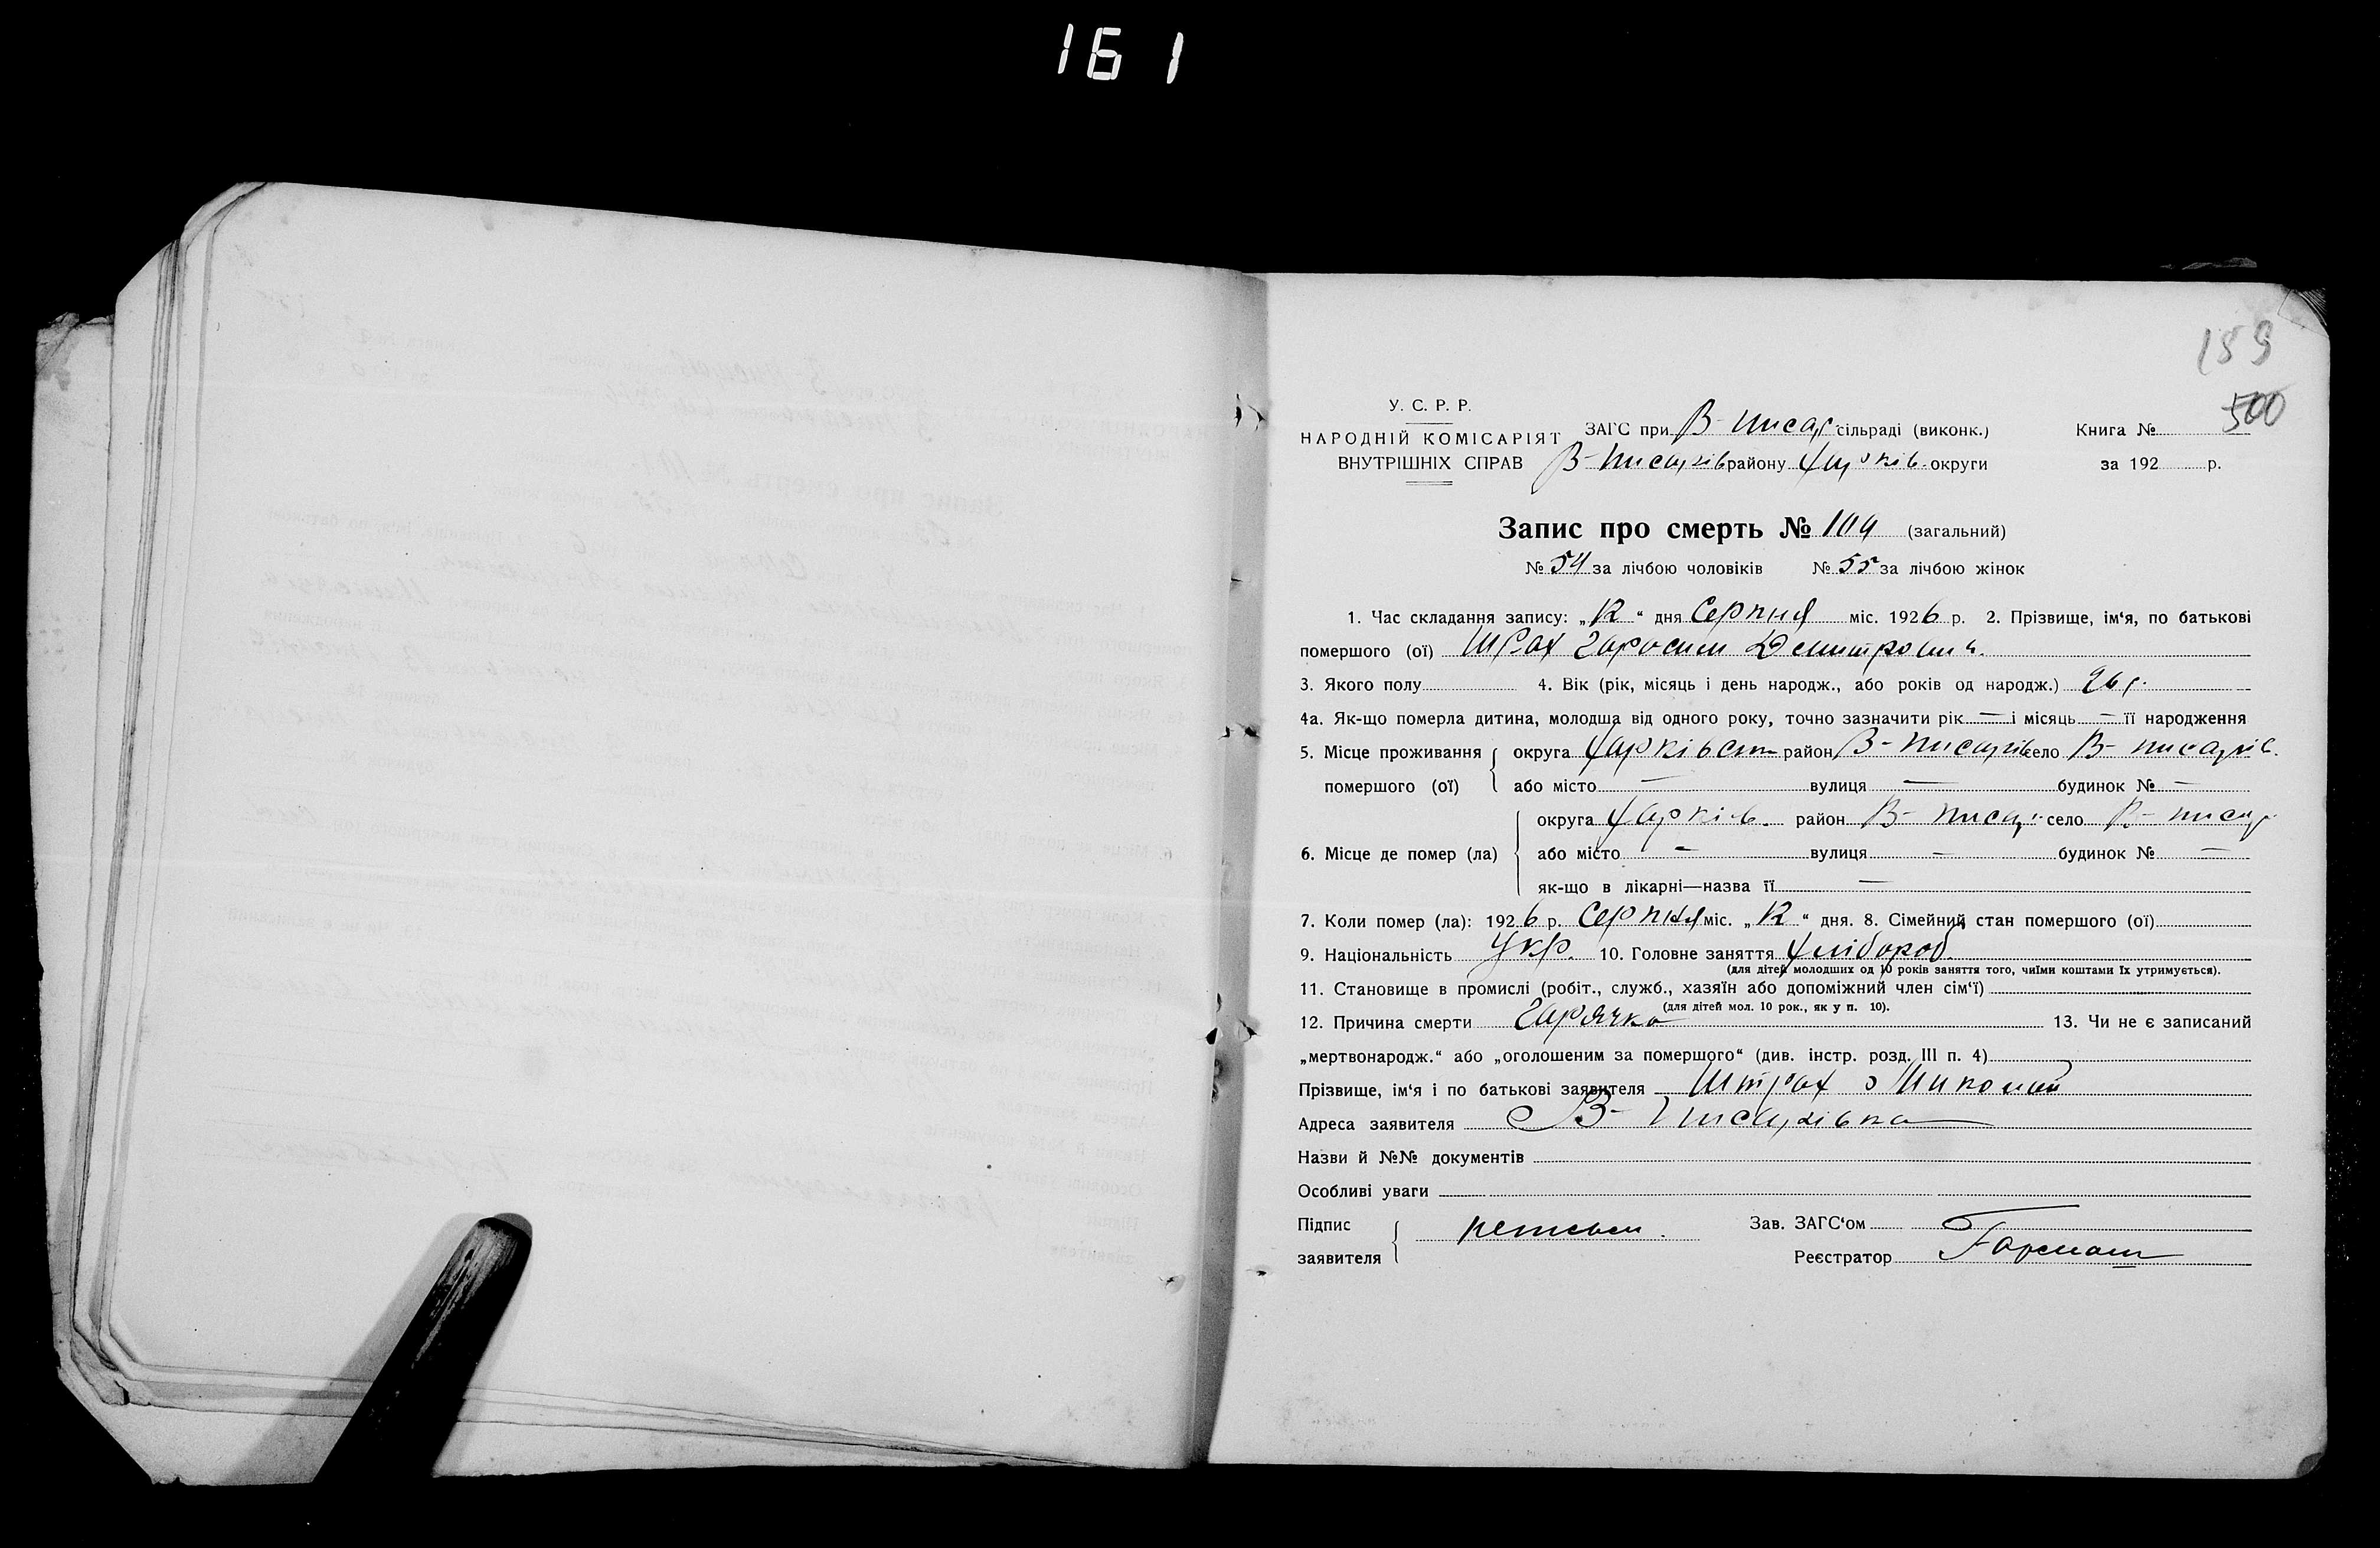 161
159
500
У. С. Р. Р.
НАРОДНІЙ КОМІСАРІЯТ
ВНУТРІШНІХ СПРАВ
ЗАГС при В-Писар. сільраді (виконк.)
Книга №
В-Писарів району Харків. округи
за 192 р.
Запис про смерть № 109 (загальний)
№ 54 за лічбою чоловіків № 55 за лічбою жінок
1. Час складання запису: „12“ дня Серпня міс. 1926 р. 2. Прізвище, ім‘я, по батькові
помершого (ої)
3. Якого полу 4. Вік (рік, місяць і день народж., або років од народж.) 26 р.
4а. Як-що померла дитина, молодша від одного року, точно зазначити рік — і місяць — її народження
5. Місце проживання помершого (ої) { округа Харківськ район В-Писарів село В-Писарів.
або місто — вулиця — будинок № —
6. Місце де помер (ла) { округа Харків. район В-Писар. село В-Писар
або місто — вулиця — будинок № —
як-що в лікарні—назва її —
7. Коли помер (ла): 1926 р. Серпня міс. „12“ дня. 8. Сімейний стан помершого (ої)
9. Національність Укр. 10. Головне заняття Хлібороб.
(для дітей молодших од 10 років заняття того, чиїми коштами їх утримується).
11. Становище в промислі (робіт., служб., хазяїн або допоміжний член сім‘ї)
(для дітей мол. 10 рок., як у п. 10).
12. Причина смерти Гарячка 13. Чи не є записаний
„мертвонародж.“ або „оголошеним за помершого“ (див. інстр. розд. III п. 4)
Прізвище, ім‘я і по батькові заявителя Штрах Миколай
Адреса заявителя В-Писарівка
Назви й №№ документів
Особливі уваги
Підпис заявителя {
Зав. ЗАГС‘ом
Реєстратор